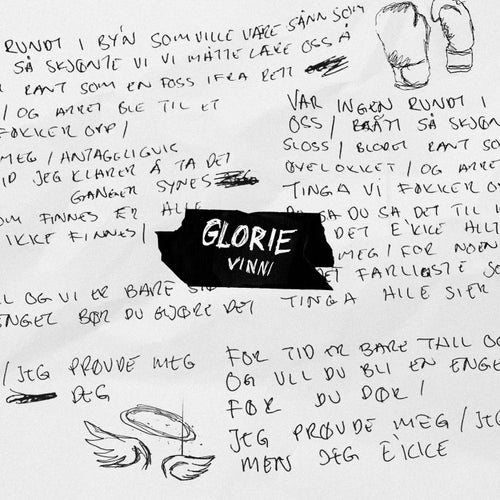 RUNDT I BY'N SOM VILLE VÆRE SÅNN SOM
SÅ SKJØNTE VI VI MÅTTE LÆRE OSS Å
RANT SOM EN FOSS IFRA RETT
/ OG ARRET BLE TIL ET
FØKKER OPP /
MEG / ANTAGGLIGVIS
TID JEG KLARER Å TA DET
GANGER SYNES
SOM FINNES ER ALLE
IKKE FINNES /
GLORIE
VINNI
OG VI ER BARE
ENGEL BØR DU GJØRE DET
/ JEG PRØVDE MEG
DEG
VAR INGEN RUNDT I
OSS / BRÅTT SÅ SKJØN
SLOSS / BLODET RANT SOM
ØYELOKKET / OG ARRE
TINGA VI FØKKER O
SA DU SA DET TIL
DET E'KKE ALLT
MEG / FOR NOEN
DET FARLIGSTE SO
TINGA ALLE SIER
FOR TID ER BARE TALL OG
OG VILL DU BLI EN ENGE
FØR DU DØR /
JEG PRØVDE MEG / JEG
MEN JEG E'KKE